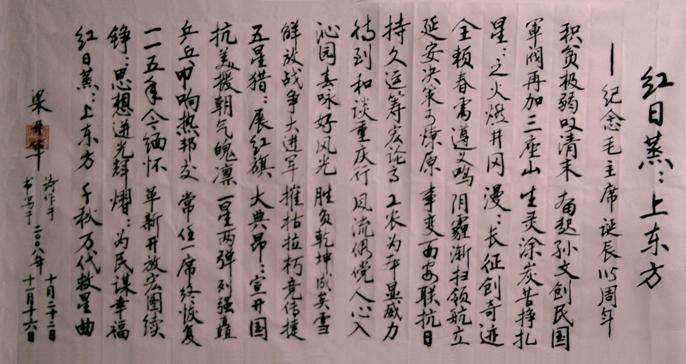 红日蒸:上东方
—纪念毛主席诞辰115周年
积贫极弱叹清末 奋起孙文创民国
军阀再加三座山 生灵涂炭苦挣扎
星:之火燃井冈 漫:长征创奇迹
全赖春雷遵义鸣 阴霾渐扫领航立
延安决策可燎原 事变西安联抗日
持久运筹 工农为本显威力
待到和谈重庆行 风流倜傥人心入
沁园春咏好风光 胜负乾坤成英雪
解放战争大进军 摧枯拉朽竞传捷
五星猎:展红旗 大典昂:宣开国
抗美援朝气魄凛 一星两弹列强矗
乒乓申响热邦交 常任一席终恢复
一一五年今缅怀 革新开放宏图续
铮:思想进光辉熠:为民谋幸福
红日蒸:上东方 千秋万代救星曲
梁开华 诗作于二〇〇八年 十月二十二日
书写于 十一月十六日